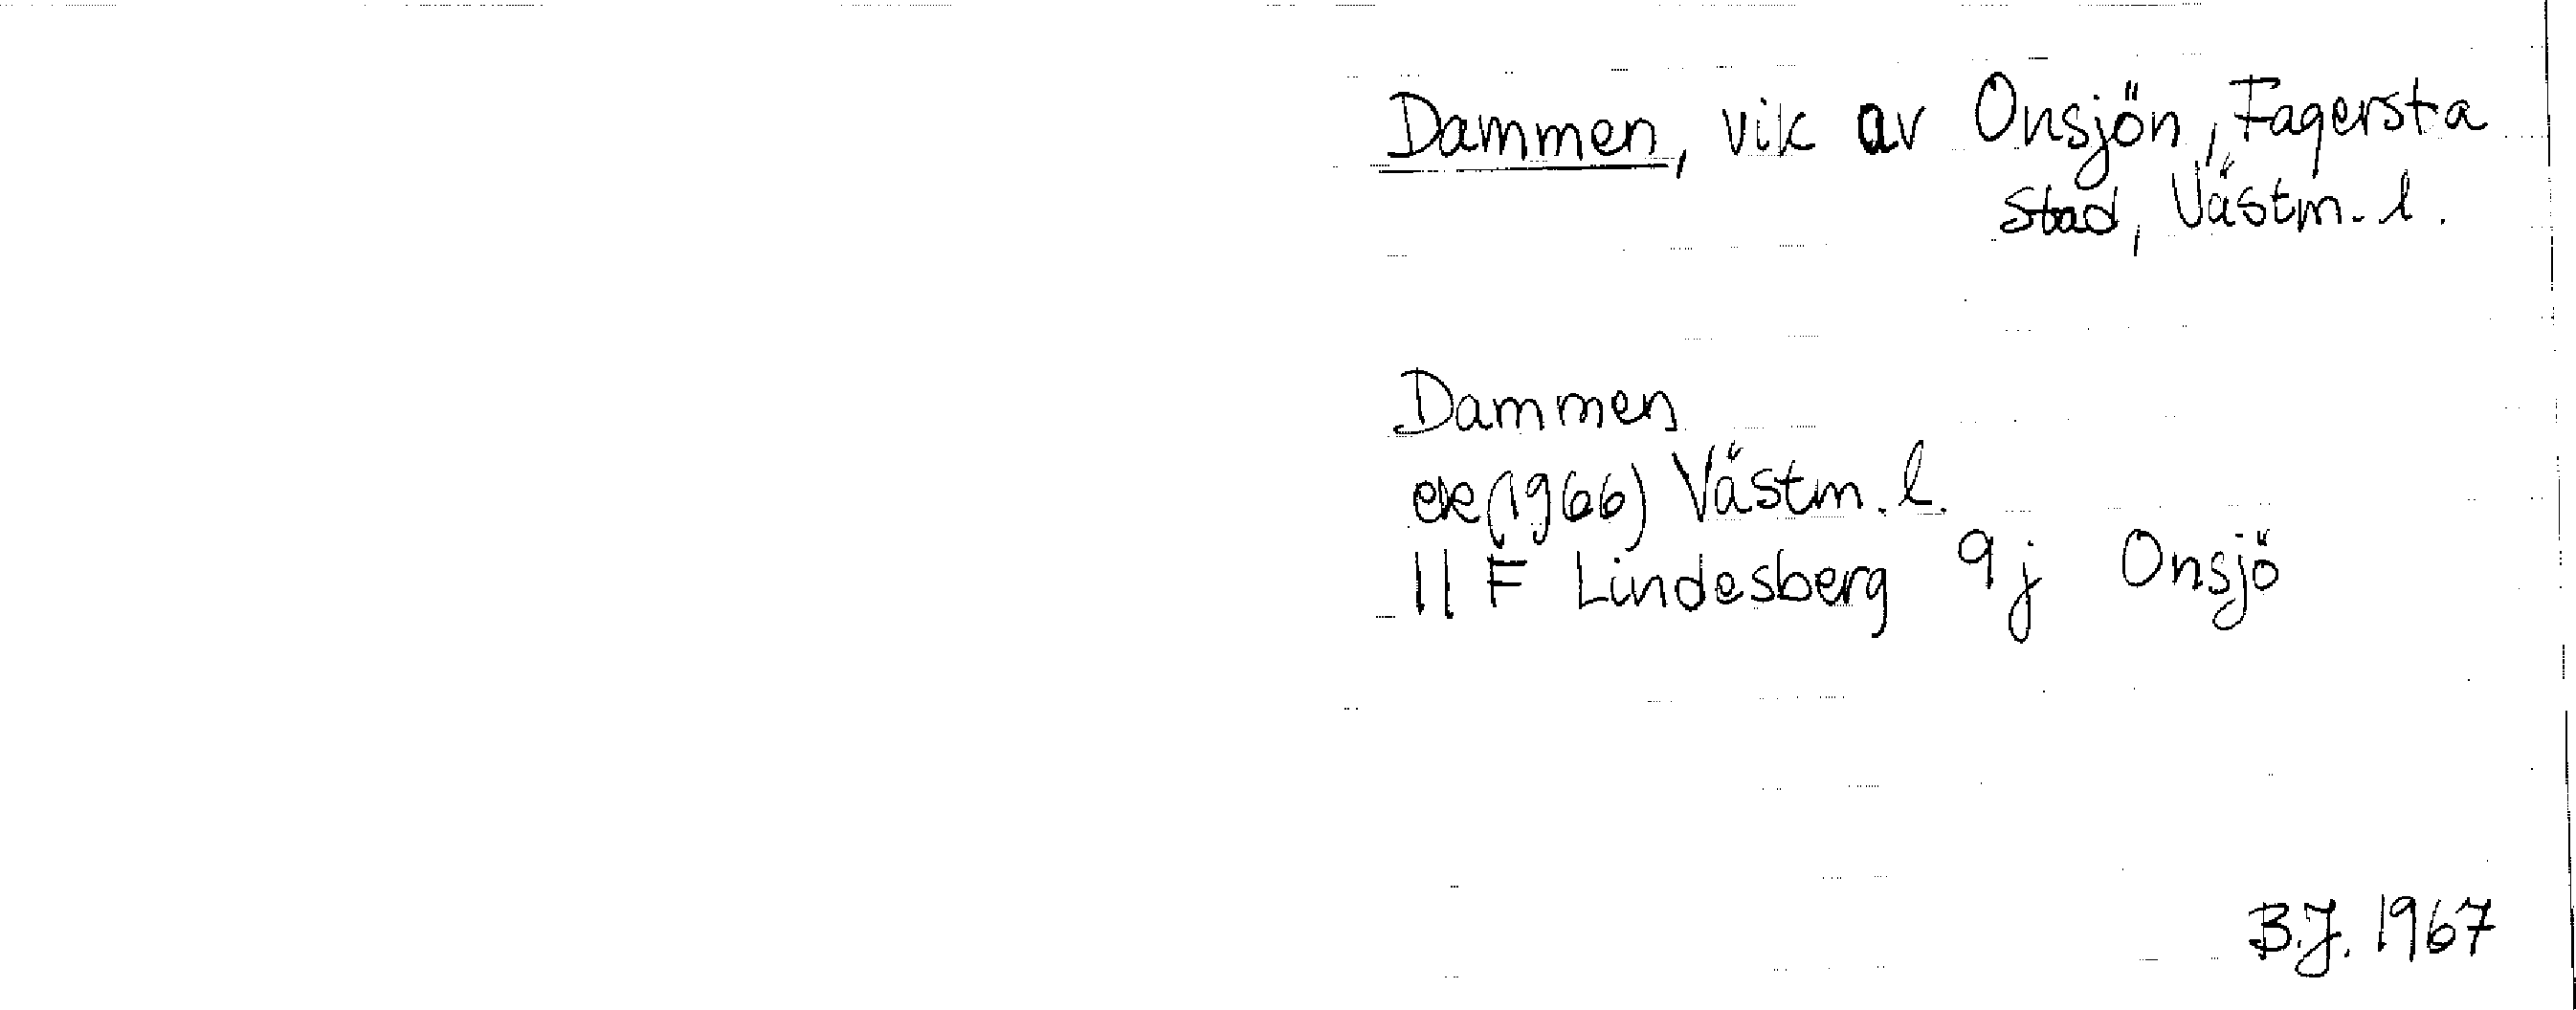 Dammen, vik av Onsjön, Fagersta
stad, Västm. l.
Dammen
ek (1966) Västm. l.
11 F Lindesberg 9j Onsjö
B.J. 1967